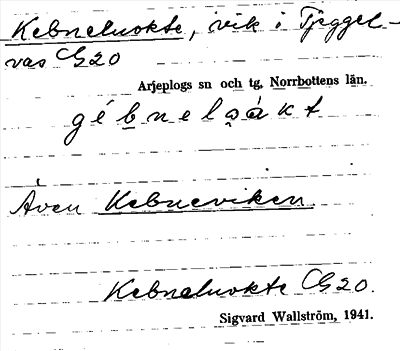 Kebneluokte, vik i Tjeggel-
vas CG20
Arjeplogs sn och tg, Norrbottens län.
gébnelu̯ák t
Även Kebneviken
Kebneluokte CG20.
Sigvard Wallström, 1941.